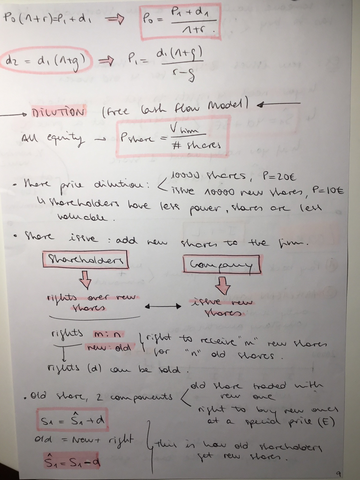 P₀(1+r)=P₁+d₁ ⟹ P₀ = (P₁+d₁)/(1+r)
d₂ = d₁(1+g) ⟹ P₁ = d₁(1+g)/(r−g)
→ DILUTION (Free Cash Flow Model) ←
All equity → Pshare = Vfirm / # shares
• Share price dilution: 10000 shares, P=20€
issue 10000 new shares, P=10€
↳ shareholders have less power, shares are less
valuable.
• Share issue: add new shares to the firm.
Shareholders Company
rights over new shares ⟷ issue new shares
rights m:n new old
right to receive "m" new shares
for "n" old shares.
rights (d) can be sold.
• Old share, 2 components
old share traded with
new one
right to buy new ones
at a special price (E)
S₁ = Ŝ₁ + d
Old = New + right
Ŝ₁ = S₁ − d
This is how old shareholders
get new shares.
9